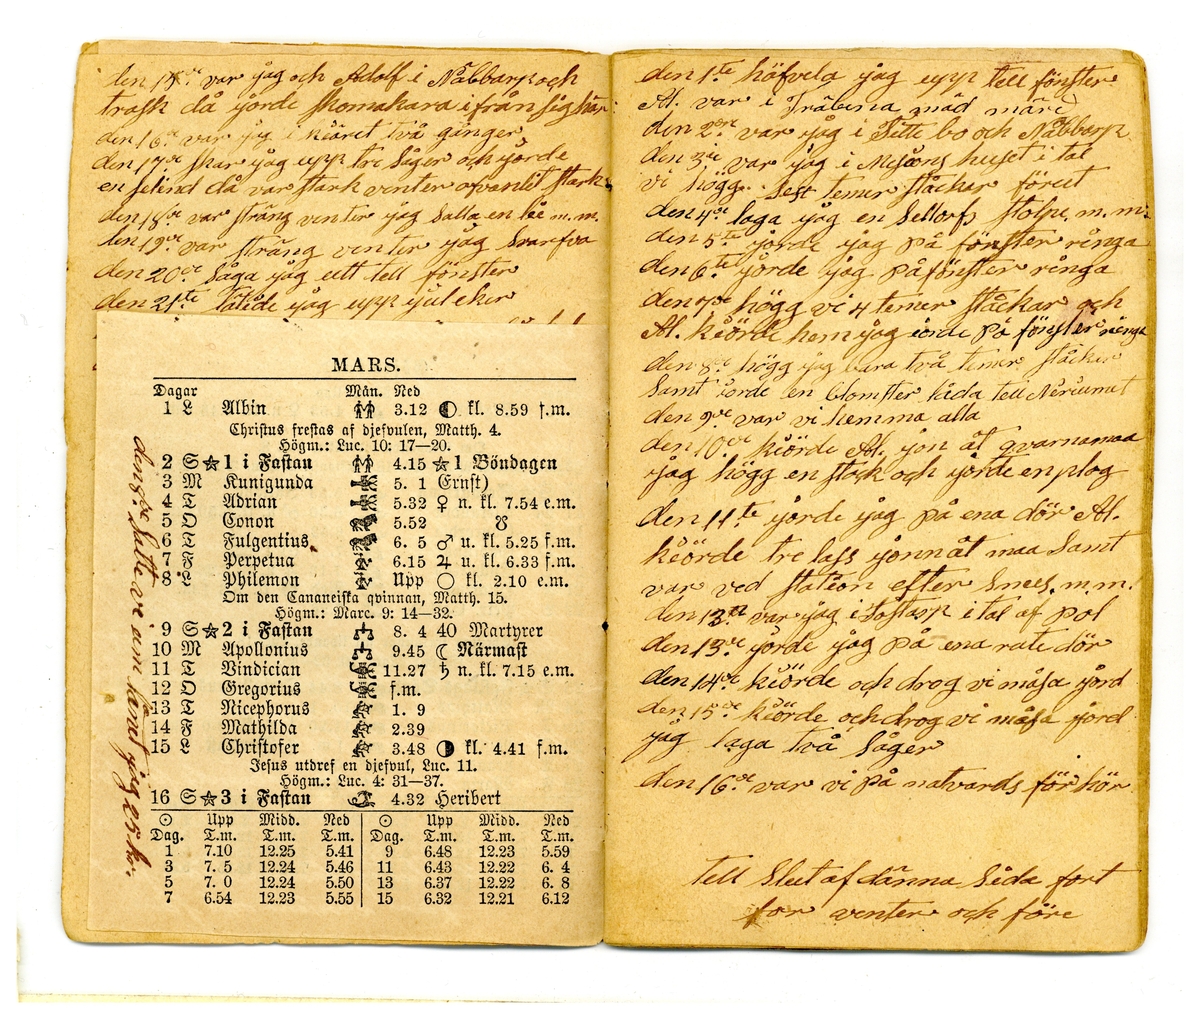 den 15de var jag och Adolf i Nåbbarp och
trask då jorde skomakara ifrån sig här
den 16de var jag i kiäret två gånger
den 17de skar jag upp tre Såger och jörde
en selind då var stark vinter ovanlit stark
den 18de var sträng vinter jag Satta en lie m.m.
den 19de var sträng vinter jag Svarfva
den 20de Såga jag ett tell fönster
den 21te Tälide jag upp jul eker
MARS.
Dagar Mån. Ned
1 L Albin 3.12 kl. 8.59 f.m.
Christus frestas af djefvulen, Matth. 4.
Högm.: Luc. 10: 17—20.
2 S ☆ 1 i Fastan 4.15 ☆ 1 Böndagen
3 M Kunigunda 5. 1 Ernst)
4 T Adrian 5.32 ♀ n. kl. 7.54 e.m.
5 O Conon 5.52 ☋
6 T Fulgentius 6. 5 ♂ u. kl. 5.25 f.m.
7 F Perpetua 6.15 ♃ u. kl. 6.33 f.m.
8 L Philemon Upp ○ kl. 2.10 e.m.
Om den Cananeiska qvinnan, Matth. 15.
Högm.: Marc. 9: 14—32.
9 S ☆ 2 i Fastan 8. 4 40 Martyrer
10 M Apollonius 9.45 ☾ Närmast
11 T Vindician 11.27 ♄ n. kl. 7.15 e.m.
12 O Gregorius f.m.
13 T Nicephorus 1. 9
14 F Mathilda 2.39
15 L Christofer 3.48 kl. 4.41 f.m.
Jesus utdref en djefvul, Luc. 11.
Högm.: Luc. 4: 31—37.
16 S ☆ 3 i Fastan 4.32 Heribert
☉ Upp Midd. Ned ☉ Upp Midd. Ned
Dag. T.m. T.m. T.m. Dag. T.m. T.m. T.m.
1 7.10 12.25 5.41 9 6.48 12.23 5.59
3 7. 5 12.24 5.46 11 6.43 12.22 6. 4
5 7. 0 12.24 5.50 13 6.37 12.22 6. 8
7 6.54 12.23 5.55 15 6.32 12.21 6.12
den 8de Satte vi an
den 1te höfvela jag upp tell fönster
Al. var i Träbena mäd märe
den 2dre var jag i Sette bo och Nåbbarp
den 3je var jag i Misions huset i tal
vi högg Sex temer ståckar föret
den 4de laga jag en Settorfs stolpe m. m.
den 5te jörde jag på fönster rånga
den 6te jörde jag på fönster rånga
den 7de högg vi 4 temer ståckar och
Al. kiörde hem jag iorde på fönster rånga
den 8de högg jag bara två temer ståcker
Samt iorde en blomster låda tell
den 9de var vi hemma alla
den 10de kiörde Al. jon åt qvarnamaa
jag högg en ståck och jorde en plog
den 11te jörde jag på ena dör Al.
kiörde tre lass jonn åt maa Samt
var ved station efter Snees m.m.
den 12te var jag i Toftarp i tal af pol
den 13de jörde jag på ena rate dör
den 14de kiörde och drog vi måsa jord
den 15de kiörde och drog vi måsa jord
jag laga två Såger
den 16de var vi på natvards för hör
tell Slut af dänna Sida fort
for venter och före